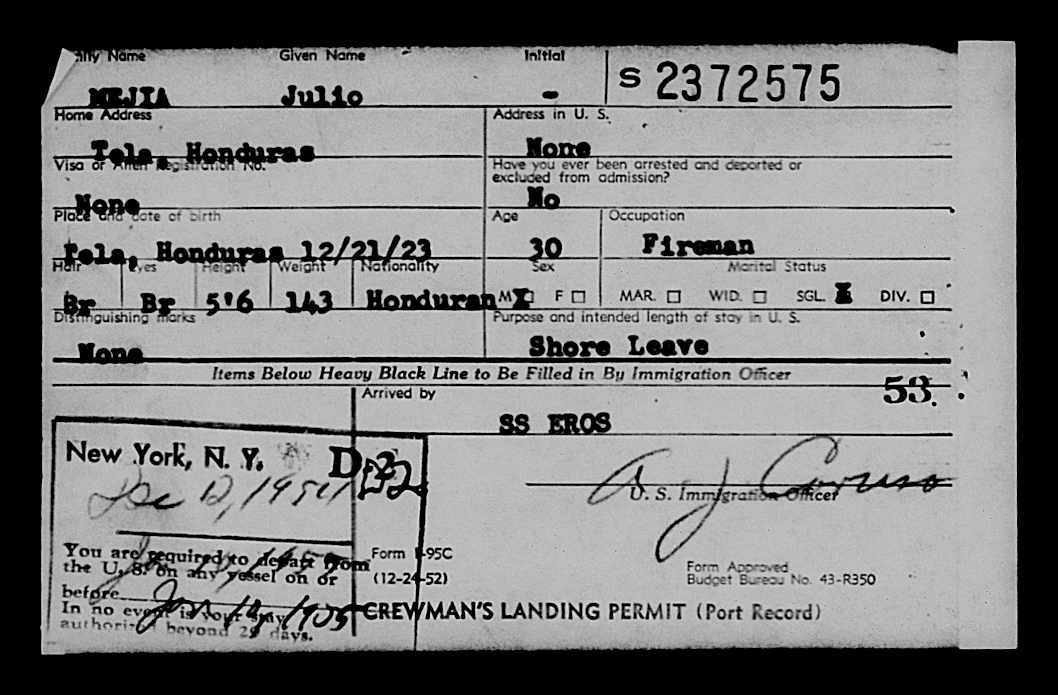 Family Name Given Name Initial
S 2372575
MEJIA Julio -
Home Address Address in U. S.
Tela, Honduras None
Visa or Alien Registration No. Have you ever been arrested and deported or
excluded from admission?
None No
Place and date of birth Age Occupation
Tela, Honduras 12/21/23 30 Fireman
Hair Eyes Height Weight Nationality Sex Marital Status
Br Br 5'6 143 Honduran M X F MAR. WID. SGL. X DIV.
Distinguishing marks Purpose and intended length of stay in U. S.
None Shore Leave
Items Below Heavy Black Line to Be Filled in By Immigration Officer
53.
Arrived by
SS EROS
New York, N. Y. D-32
Dec 12, 1954
A J Caruso
U. S. Immigration Officer
You are required to depart from
the U. S. on any vessel on or
before
In no event is your stay
authorized beyond 29 days.
Form I-95C
(12-24-52)
Form Approved
Budget Bureau No. 43-R350
CREWMAN'S LANDING PERMIT (Port Record)